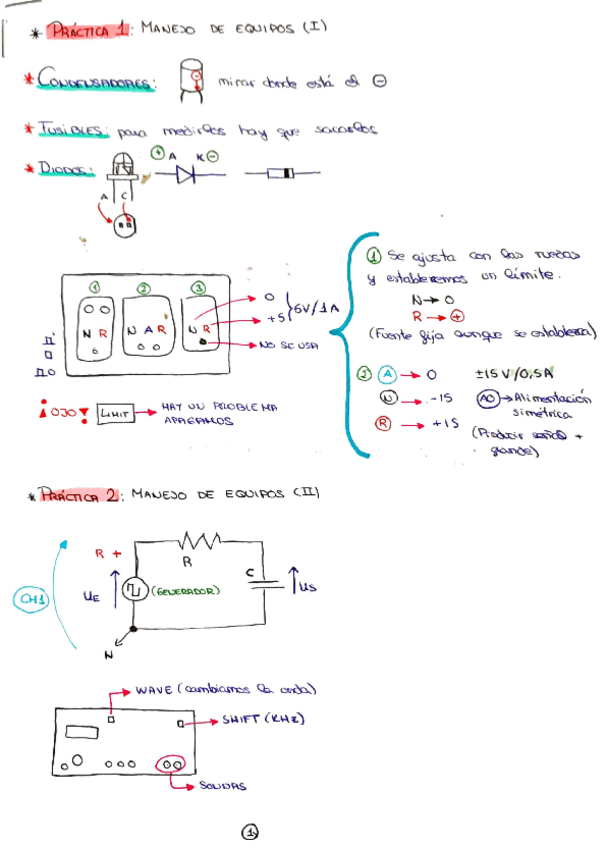 * PRÁCTICA 1: MANEJO DE EQUIPOS (I)
* CONDENSADORES: mirar donde está el ⊖
* FUSIBLES: para medirlos hay que sacarlos
* DIODOS:
+ A K ⊖
A C
① ② ③
N R N A R N R
0
+5
} 5V/1A
NO SE USA
¡OJO! LIMIT → HAY UN PROBLEMA
APAGAMOS
① Se ajusta con las ruedas
y establecemos un límite.
N → 0
R → ⊕
(Fuente fija aunque se establezca)
② A → 0 ±15V/0,5A
N → -15 AO → Alimentación
simétrica
R → +15 (Producir señal +
grande)
* PRÁCTICA 2: MANEJO DE EQUIPOS (II)
CH1
R +
UE
(GENERADOR)
R
C
US
N
WAVE (cambiamos la onda)
SHIFT (KHz)
SALIDAS
1